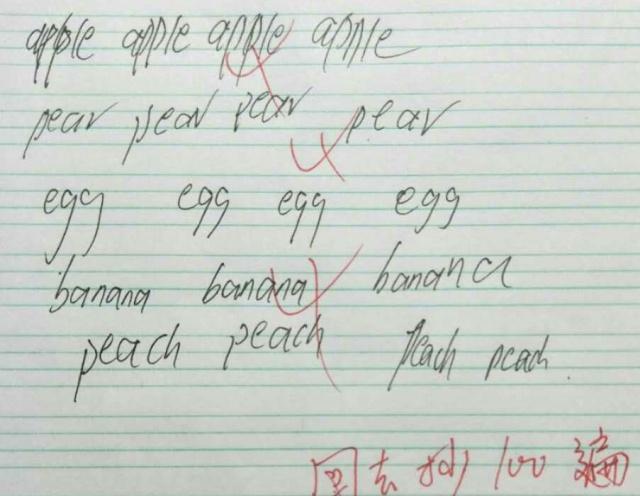 apple apple apple apple
pear pear pear pear
egg egg egg egg
banana banana banana
peach peach peach peach
回去抄100遍